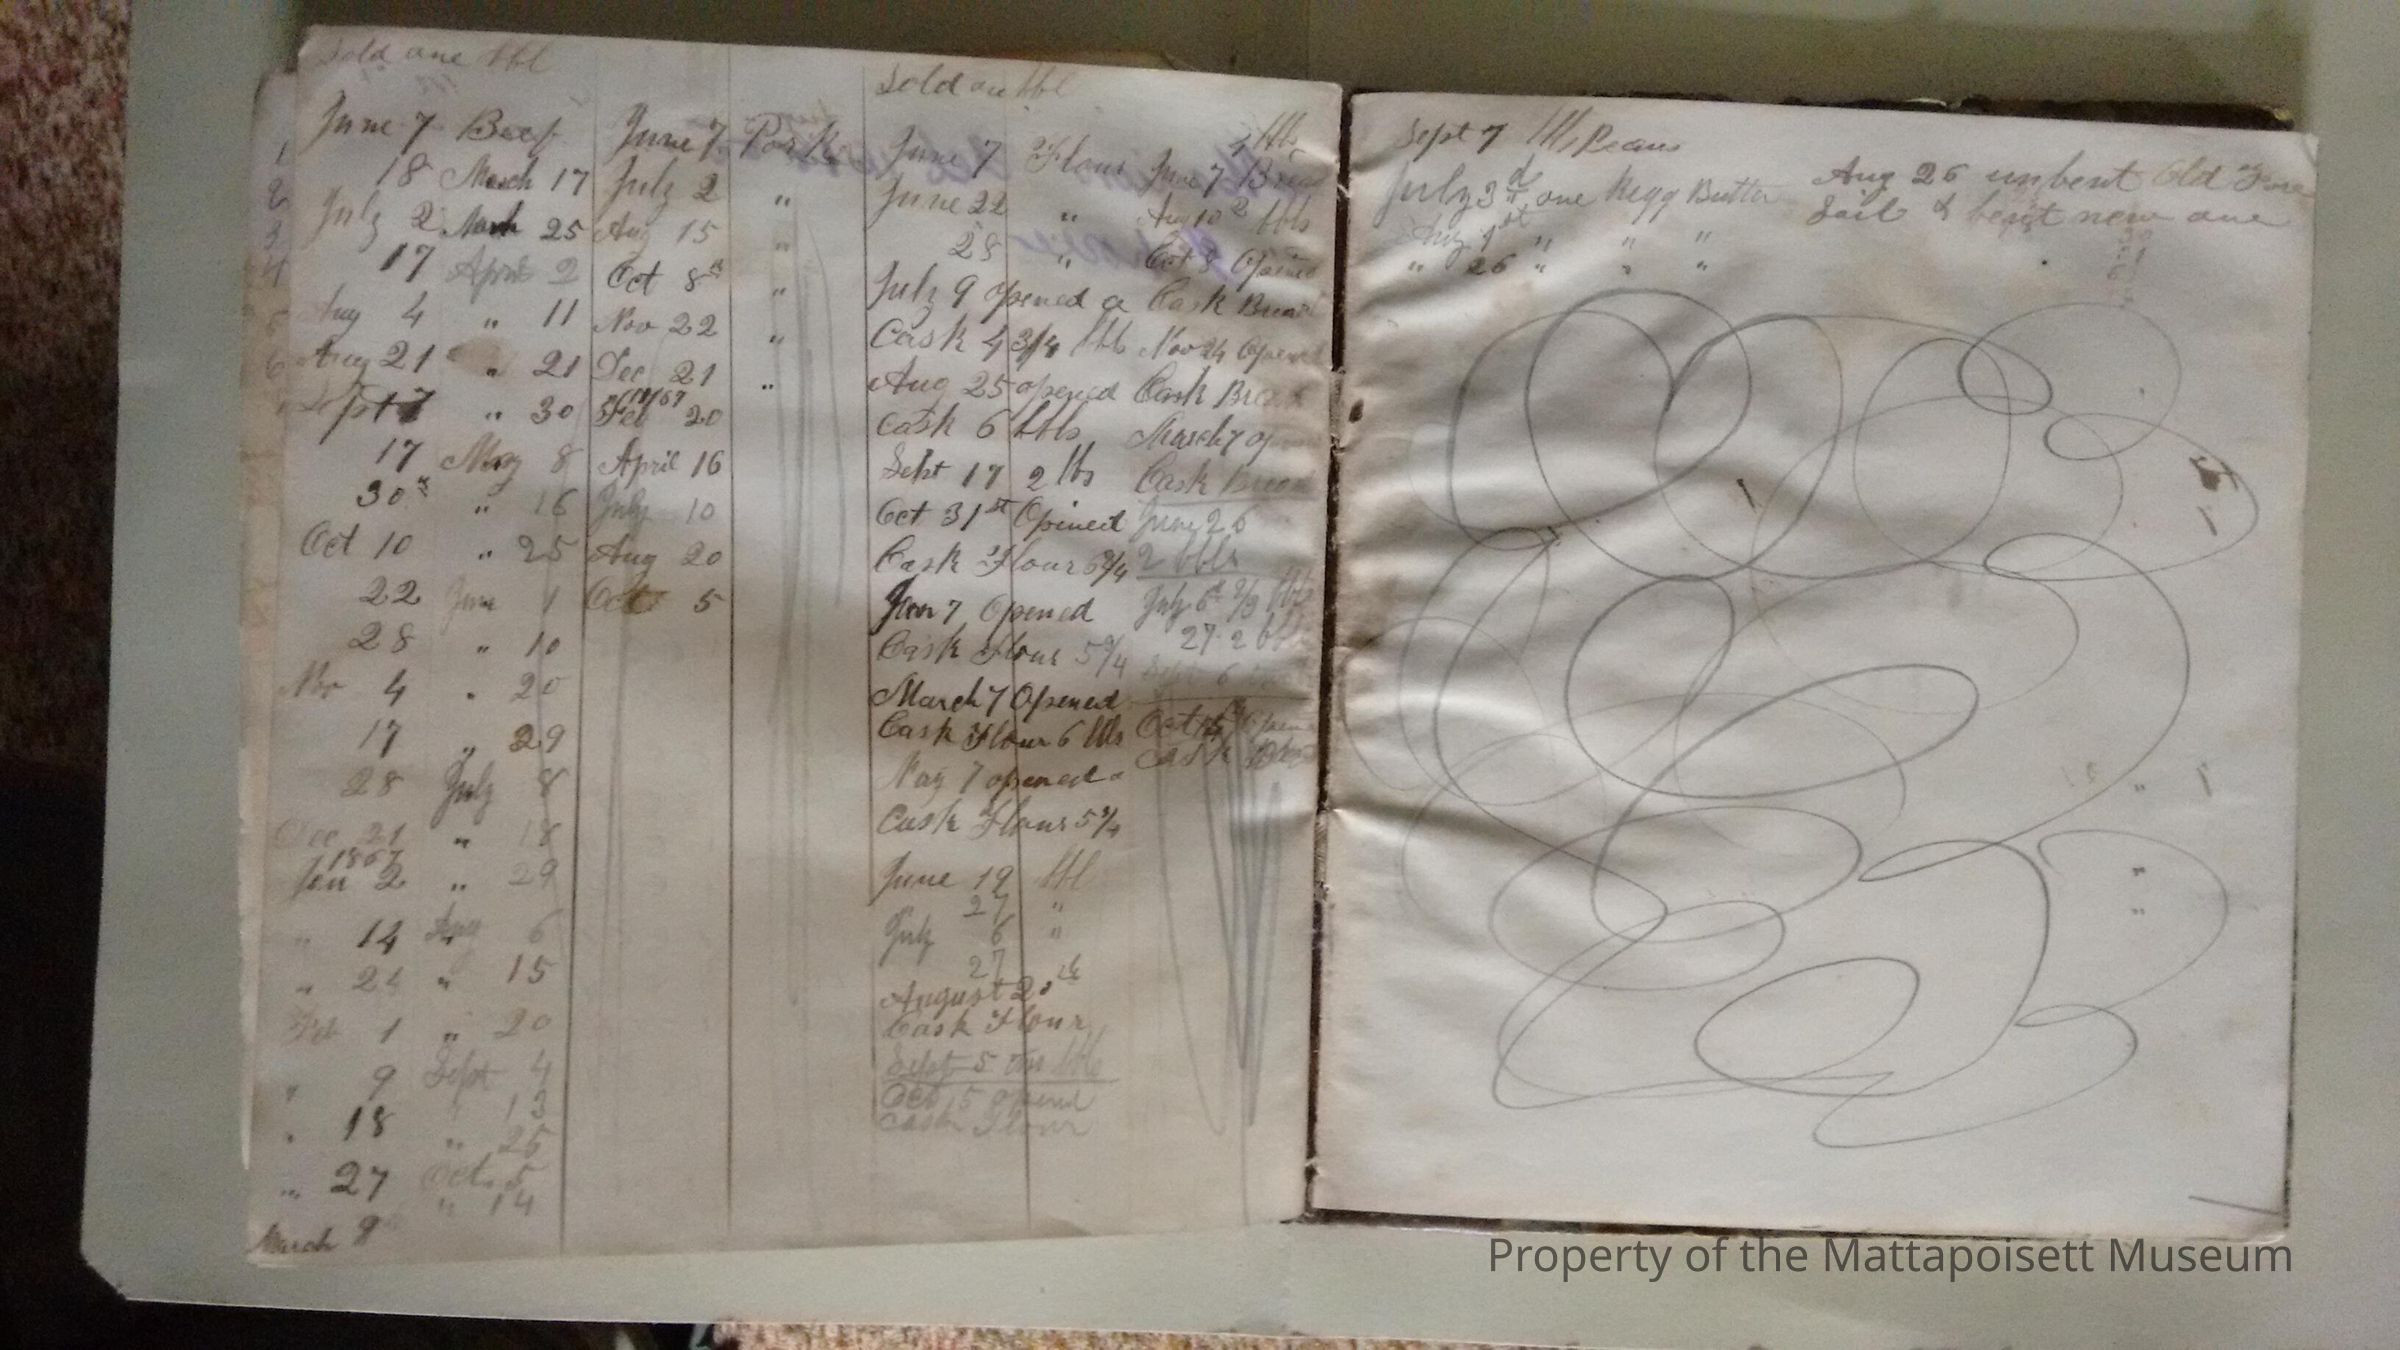 Sold one bbl
June 7 Beef
18 March 17
July 2 March 25
17 April 2
Aug 4 " 11
Aug 21 " 21
Sept 7 " 30
17 May 8
30th " 16
Oct 10 " 25
22 June 1
28 " 10
Nov 4 " 20
17 " 29
28 July 8
Dec 21 " 18
1867
Jan 2 " 29
" 14 6
" 24 " 15
Feb 1 " 20
" 9 Sept 4
" 18 " 13
" 25
" 27 Oct 5
" 14
March 8
June 7 Pork
July 2 "
Aug 15 "
Oct 8th "
Nov 22 "
Dec 21 "
1867
Feb 20
April 16
July 10
Aug 20
Oct 5
Sold one bbl
June 7 Flour
June 22 "
28 "
July 9 opened a
Cask 4 3/4 bbls
Aug 25 opened
Cask 6 bbls
Sept 17 2 lbs
Oct 31st Opened
Cask Flour 6 3/4
Jan 7 Opened
Cask Flour 5 3/4
March 7 Opened
Cask Flour 6 bbls
May 7 opened a
Cask Flour 5 3/4
June 19 bbl
27 "
July 6 "
27
August 20th
Cask Flour
Sept 5 bbls
Oct 15 opend
Cask Flour
4 bbls
June 7 Bread
Aug 10 2 bbls
Oct 8 Opened
Cask Bread
Nov 24 Opened
Cask Bread
March 7
Cask Bread
June 26
2 bbls
July 6th bbls
27 2 bbls
Sept 6
Oct 15
Cask
Sept 7 bbls Beans
July 3d one Kegg Butter
Aug 1st " " "
" 26 " " "
Aug 26 unbent Old Fore
Sail & bent new one
Property of the Mattapoisett Museum